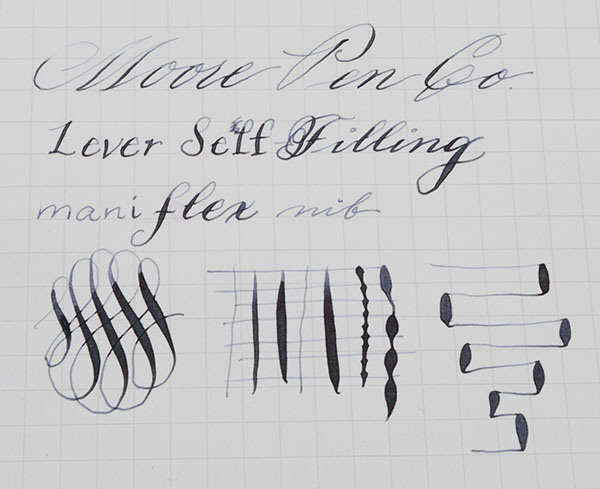 Moose Pen Co.
Lever Self-Filling
mani flex nib